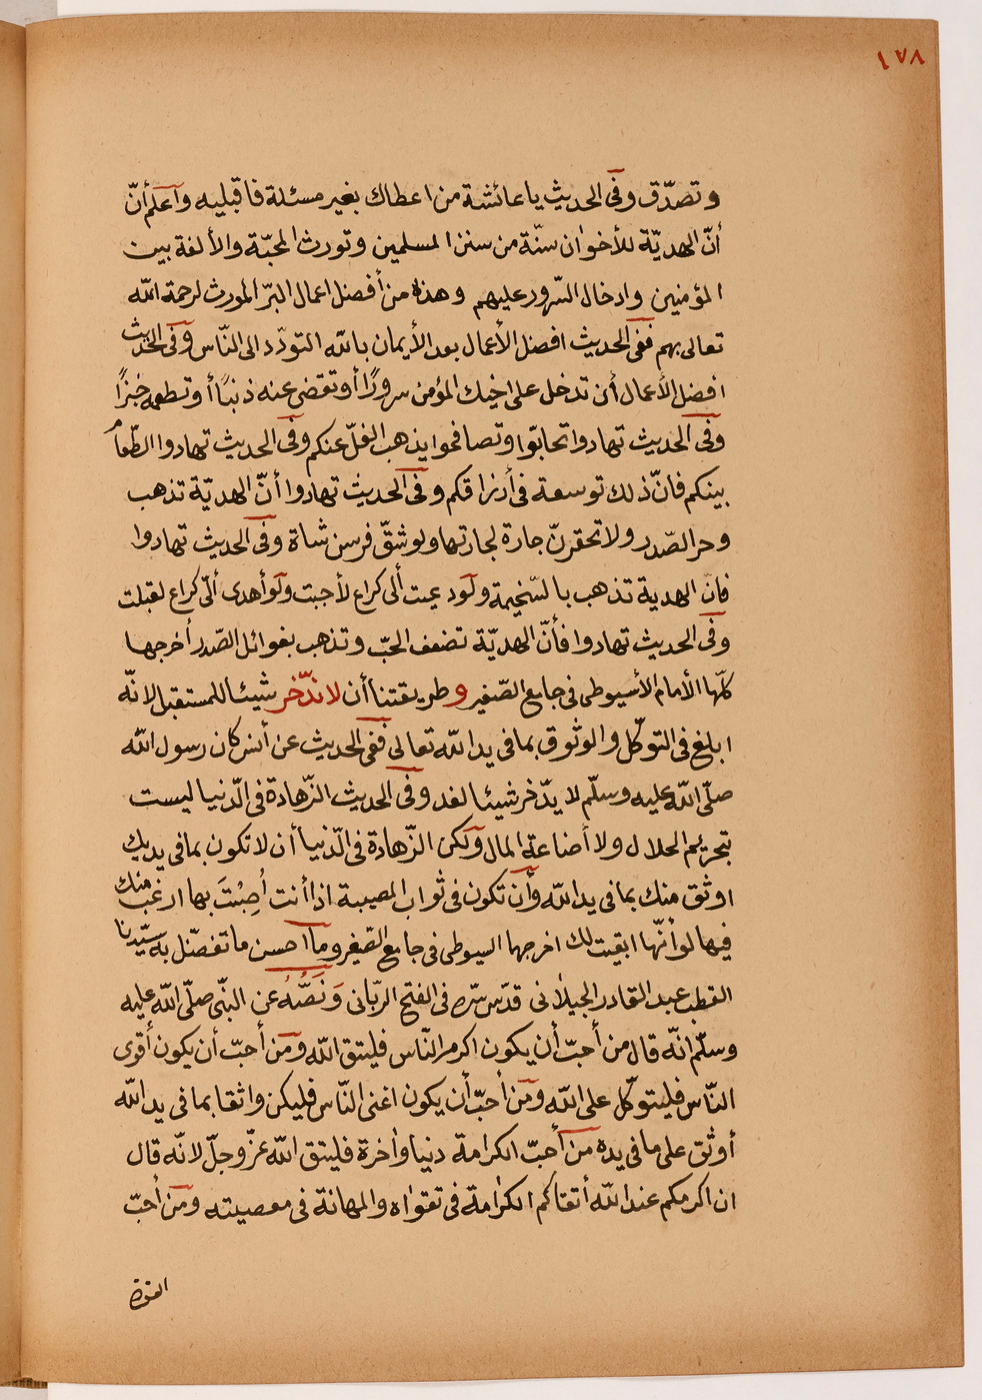 ١٧٨
وتصدّق وفى الحديث ياعائشة من اعطاك بغير مسئلة فاقبليه وآعلم أنّ
أنّ الهديّة للأخوان سنّة من سنن المسلمين وتورث المحبّة والألفة بين
المؤمنين وادخال السّرور عليهم وهذه من أفضل اعمال البرّ المورث لرحمة الله
تعالى بهم ففى الحديث افضل الأعمال بعد الأيمان بالله التودّد الى النّاس وفى الحديث
افضل الأعمال أن تدخل على اخيك المؤمن سرورًا أو تقضى عنه دينًا أو تطعمه خبزًا
وفى الحديث تهادوا تحابّوا وتصافحوا يذهب الغلّ عنكم وفى الحديث تهادوا الطّعام
بينكم فانّ ذلك توسعة فى أرزاقكم وفى الحديث تهادوا أنّ الهديّة تذهب
وحر الصّدر ولا تحقرنّ جارة لجارتها ولو شقّ فرسن شاة وفى الحديث تهادوا
فانّ الهدية تذهب بالسّخيمة ولو دعيت ألى كراع لأجبت ولو أهدى ألىّ كراع لقبلت
وفى الحديث تهادوا فأنّ الهديّة تضعف الحبّ وتذهب بغوائل الصّدر أخرجها
كلّها الأمام الأسيوطى فى جامع الصّغير وطريقتنا أن لا ندّخر شيئا للمستقبل لانّه
ابلغ فى التوكّل والوثوق بما فى يد الله تعالى ففى الحديث عن أنس كان رسول الله
صلّى الله عليه وسلّم لا يدّخر شيئا لغد وفى الحديث الزّهادة فى الدّنيا ليست
بتحريم الحلال ولا أضاعة المال ولكن الزّهادة فى الدّنيا أن لا تكون بما فى يديك
اوثق منك بما فى يد الله وأن تكون فى ثواب المصيبة اذا أنت اُصِبْتَ بها ارغب منك
فيها لو أنّها ابقيت لك اخرجها السيوطى فى جامع الصّغير وما احسن ما تفضّل به سيّدنا
القطب عبد القادر الجيلانى قدّس سرّه فى الفتح الربّانى وَنَصُّهُ عن النبّى صلّى الله عليه
وسلّم انّه قال من أحبّ أن يكون اكرم النّاس فليتق الله ومن أحبّ أن يكون أقوى
النّاس فليتوكّل على الله ومن أحبّ أن يكون اغنى النّاس فليكن واثقا بما فى يد الله
أوثق على ما فى يده من أحبّ الكرامة دنيا واخرة فليتق الله عزّ وجلّ لانّه قال
ان اكرمكم عند الله أتقاكم الكرامة فى تقواه والمهانة فى معصيته ومن أحبّ
القوة